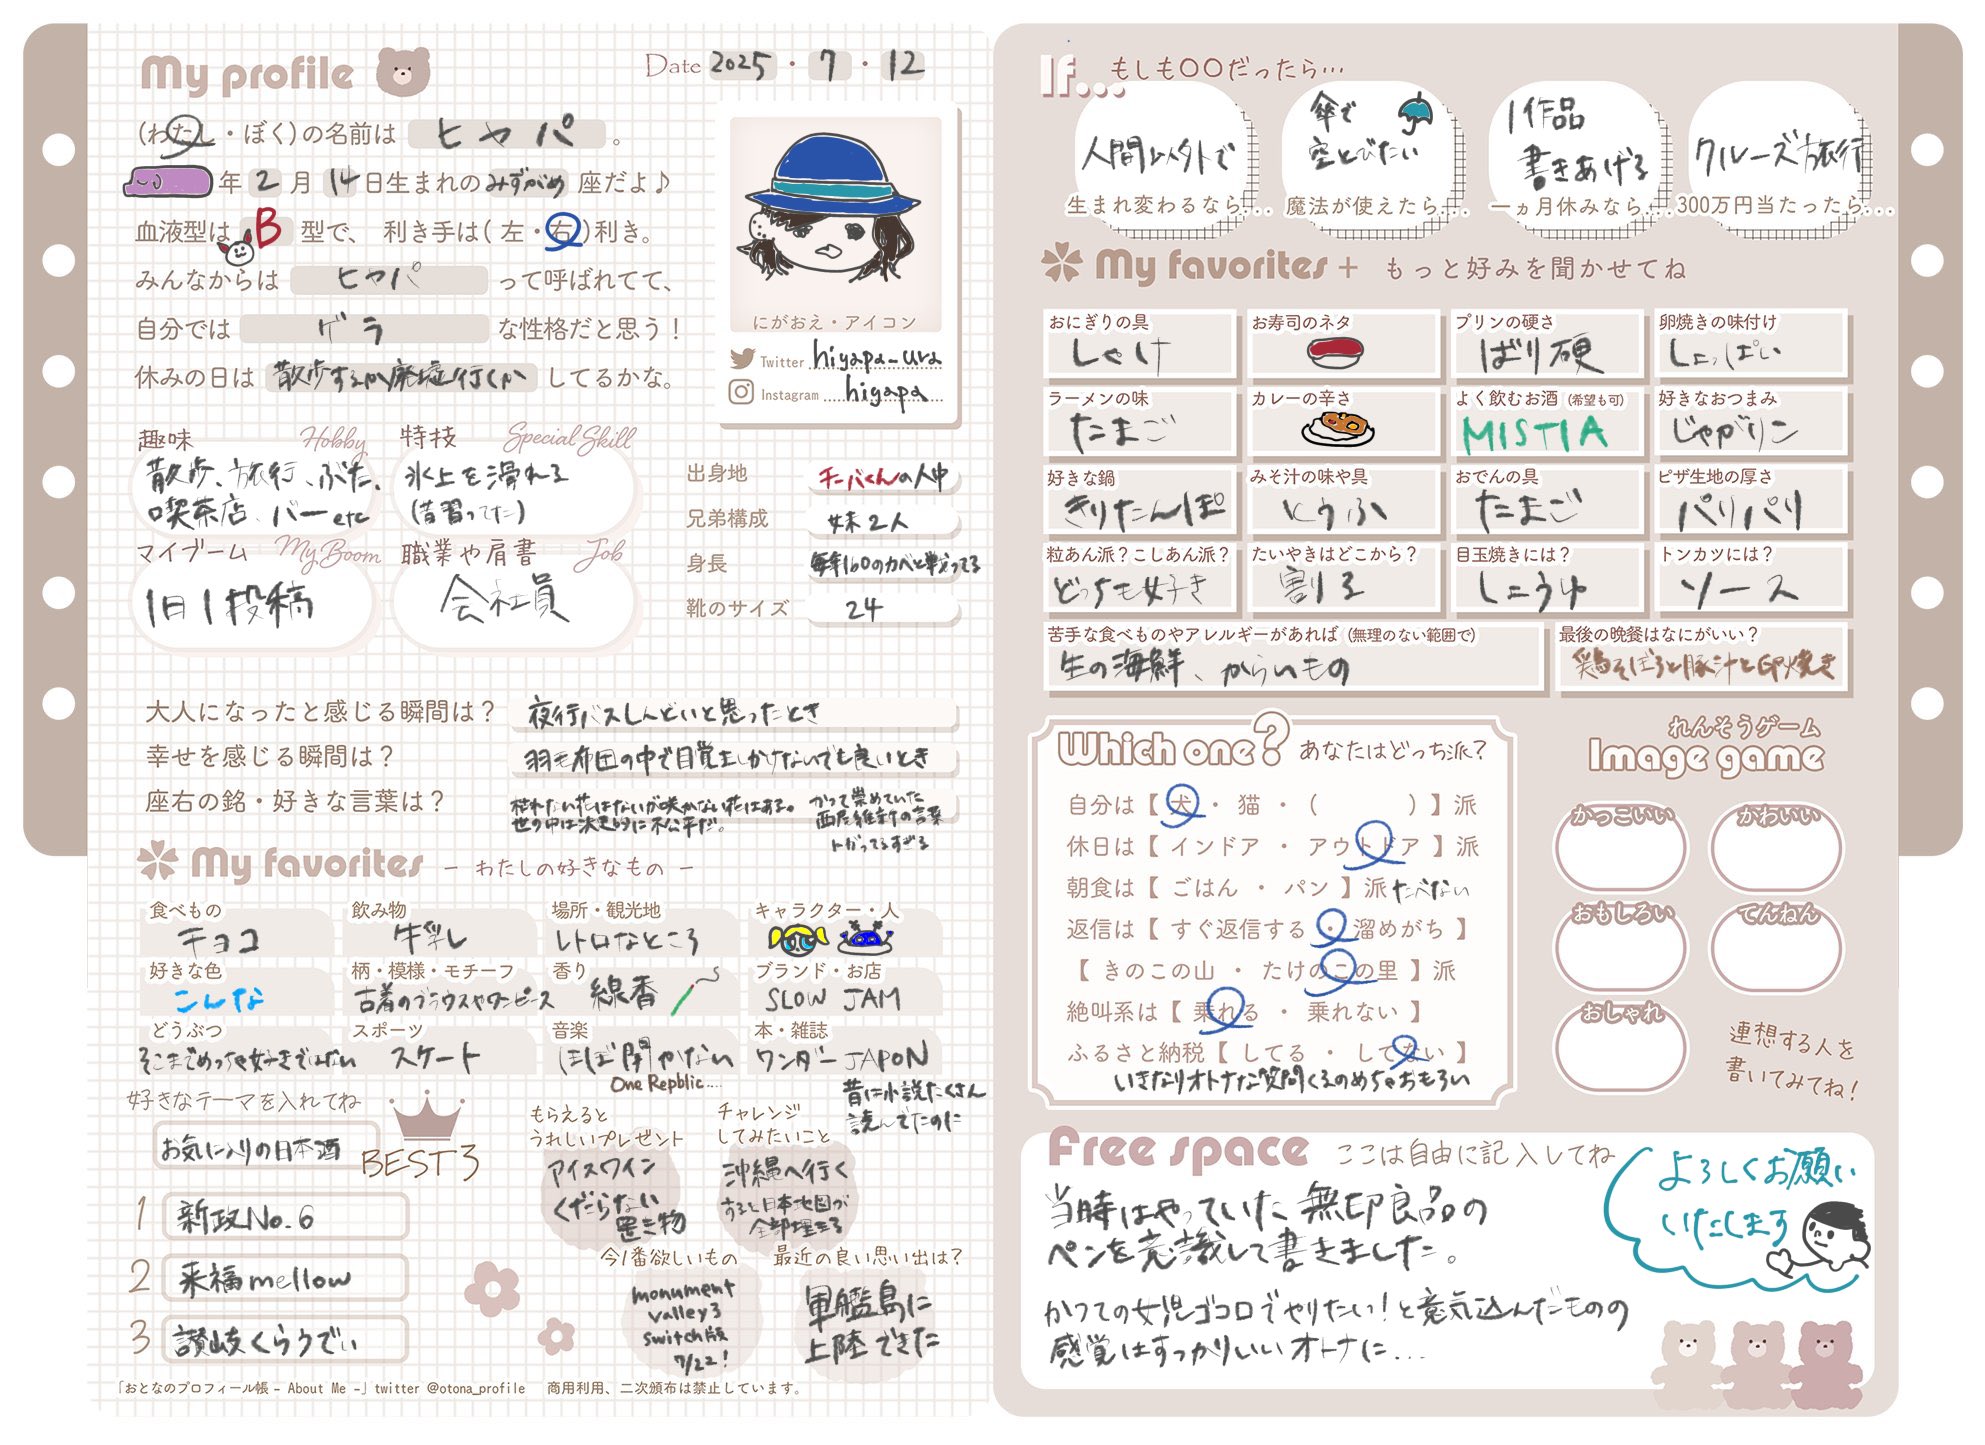 My profile
Date 2025・7・12
(わたし・ぼく)の名前は ヒヤパ 。
年 2 月 14 日生まれの みずがめ 座だよ♪
血液型は B 型で、 利き手は( 左・右 )利き。
みんなからは ヒヤパ って呼ばれてて、
自分では ゲラ な性格だと思う！
休みの日は 散歩するか廃墟行くか してるかな。
にがおえ・アイコン
Twitter hiyapa_ura
Instagram hiyapa
趣味 Hobby
散歩、旅行、ぶた、
喫茶店、バーetc
特技 Special Skill
氷上を滑れる
(昔習ってた)
マイブーム My Boom
1日1投稿
職業や肩書 Job
会社員
出身地 チーバくんの人中
兄弟構成 妹2人
身長 毎年160のカベと戦ってる
靴のサイズ 24
大人になったと感じる瞬間は？ 夜行バスしんどいと思ったとき
幸せを感じる瞬間は？ 羽毛布団の中で目覚ましかけないでも良いとき
座右の銘・好きな言葉は？
枯れない花はないが咲かない花はある。
世の中は決定的に不公平だ。
かつて崇めていた
西尾維新の言葉
トガってるすぎる
My favorites － わたしの好きなもの －
食べもの
チョコ
飲み物
牛乳
場所・観光地
レトロなところ
キャラクター・人
好きな色
こんな
柄・模様・モチーフ
古着のブラウスやワンピース
香り
線香
ブランド・お店
SLOW JAM
どうぶつ
そこまでめっちゃ好きではない
スポーツ
スケート
音楽
ほぼ聞かない
One Repblic....
本・雑誌
ワンダーJAPON
昔は小説たくさん
読んでたのに
好きなテーマを入れてね
お気に入りの日本酒
BEST3
1 新政No.6
2 来福mellow
3 讃岐くらうでぃ
もらえると
うれしいプレゼント
アイスワイン
くだらない
置き物
チャレンジ
してみたいこと
沖縄へ行く
すると日本地図が
全部埋まる
今1番欲しいもの
monument
valley3
switch版
7/22!
最近の良い思い出は？
軍艦島に
上陸できた
「おとなのプロフィール帳 - About Me -」twitter @otona_profile 商用利用、二次頒布は禁止しています。
If... もしも〇〇だったら…
人間以外で
生まれ変わるなら...
傘で
空とびたい
魔法が使えたら...
1作品
書きあげる
一ヵ月休みなら...
クルーズ旅行
300万円当たったら...
My favorites + もっと好みを聞かせてね
おにぎりの具
しゃけ
お寿司のネタ
プリンの硬さ
ばり硬
卵焼きの味付け
しょっぱい
ラーメンの味
たまご
カレーの辛さ
よく飲むお酒 (希望も可)
MISTIA
好きなおつまみ
じゃがりこ
好きな鍋
きりたんぽ
みそ汁の味や具
とうふ
おでんの具
たまご
ピザ生地の厚さ
パリパリ
粒あん派？こしあん派？
どっちも好き
たいやきはどこから？
割る
目玉焼きには？
しょうゆ
トンカツには？
ソース
苦手な食べものやアレルギーがあれば (無理のない範囲で)
生の海鮮、からいもの
最後の晩餐はなにがいい？
鶏そぼろと豚汁と卵焼き
Which one? あなたはどっち派？
自分は【 犬 ・ 猫 ・ ( ) 】派
休日は【 インドア ・ アウトドア 】派
朝食は【 ごはん ・ パン 】派 たべない
返信は【 すぐ返信する ・ 溜めがち 】
【 きのこの山 ・ たけのこの里 】派
絶叫系は【 乗れる ・ 乗れない 】
ふるさと納税【 してる ・ してない 】
いきなりオトナな質問くるのめちゃおもろい
れんそうゲーム
Image game
かっこいい
かわいい
おもしろい
てんねん
おしゃれ
連想する人を
書いてみてね！
Free space ここは自由に記入してね
当時はやっていた無印良品の
ペンを意識して書きました。
かつての女児ゴコロでやりたい！と意気込んだものの
感覚はすっかりいいオトナに...
よろしくお願い
いたします